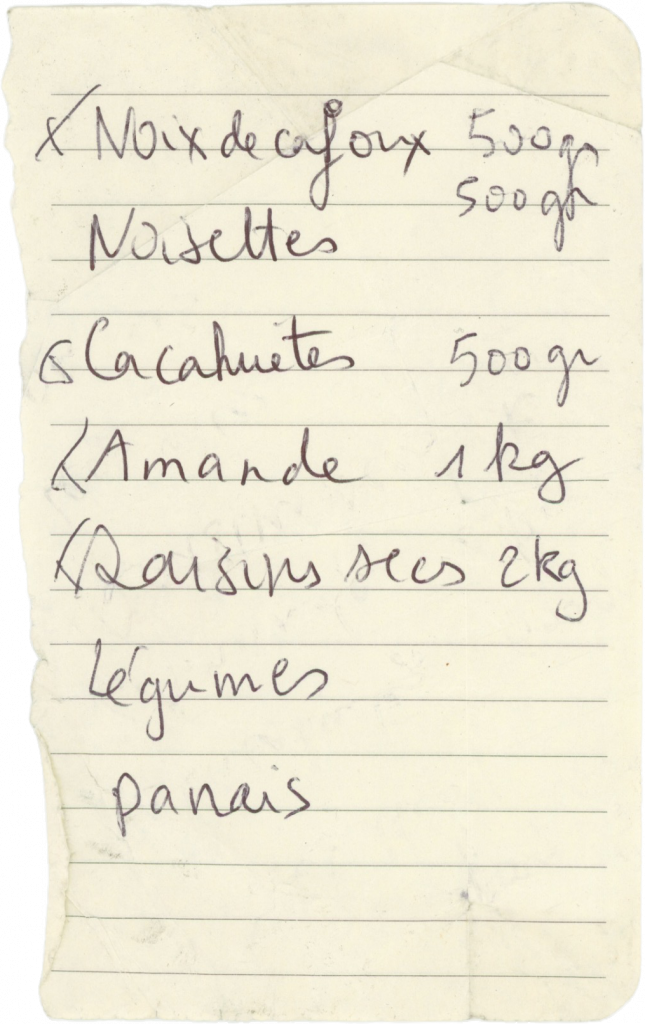 x Noix de cajoux 500gr
500gr
Noisettes
Cacahuetes 500gr
Amande 1 kg
Raisins secs 2kg
Légumes
panais